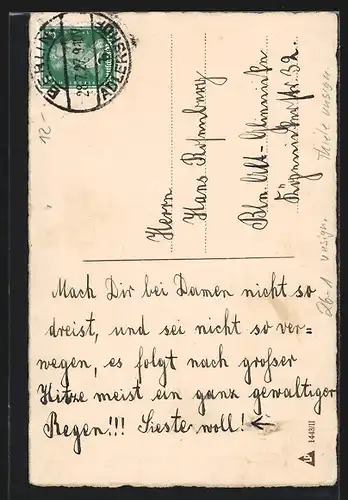 BERLIN
ADLERSHOF
12-
Herrn
Hans Rosenberg
Bln. Alt-Glienicke
Köpenickerstr. 32.
Thiele unsign
26-1 unsign.
Mach Dir bei Damen nicht so
dreist, und sei nicht so ver=
wegen, es folgt nach großer
Hitze meist ein ganz gewaltiger
Regen!!! Sieste woll! ↖
1443/II